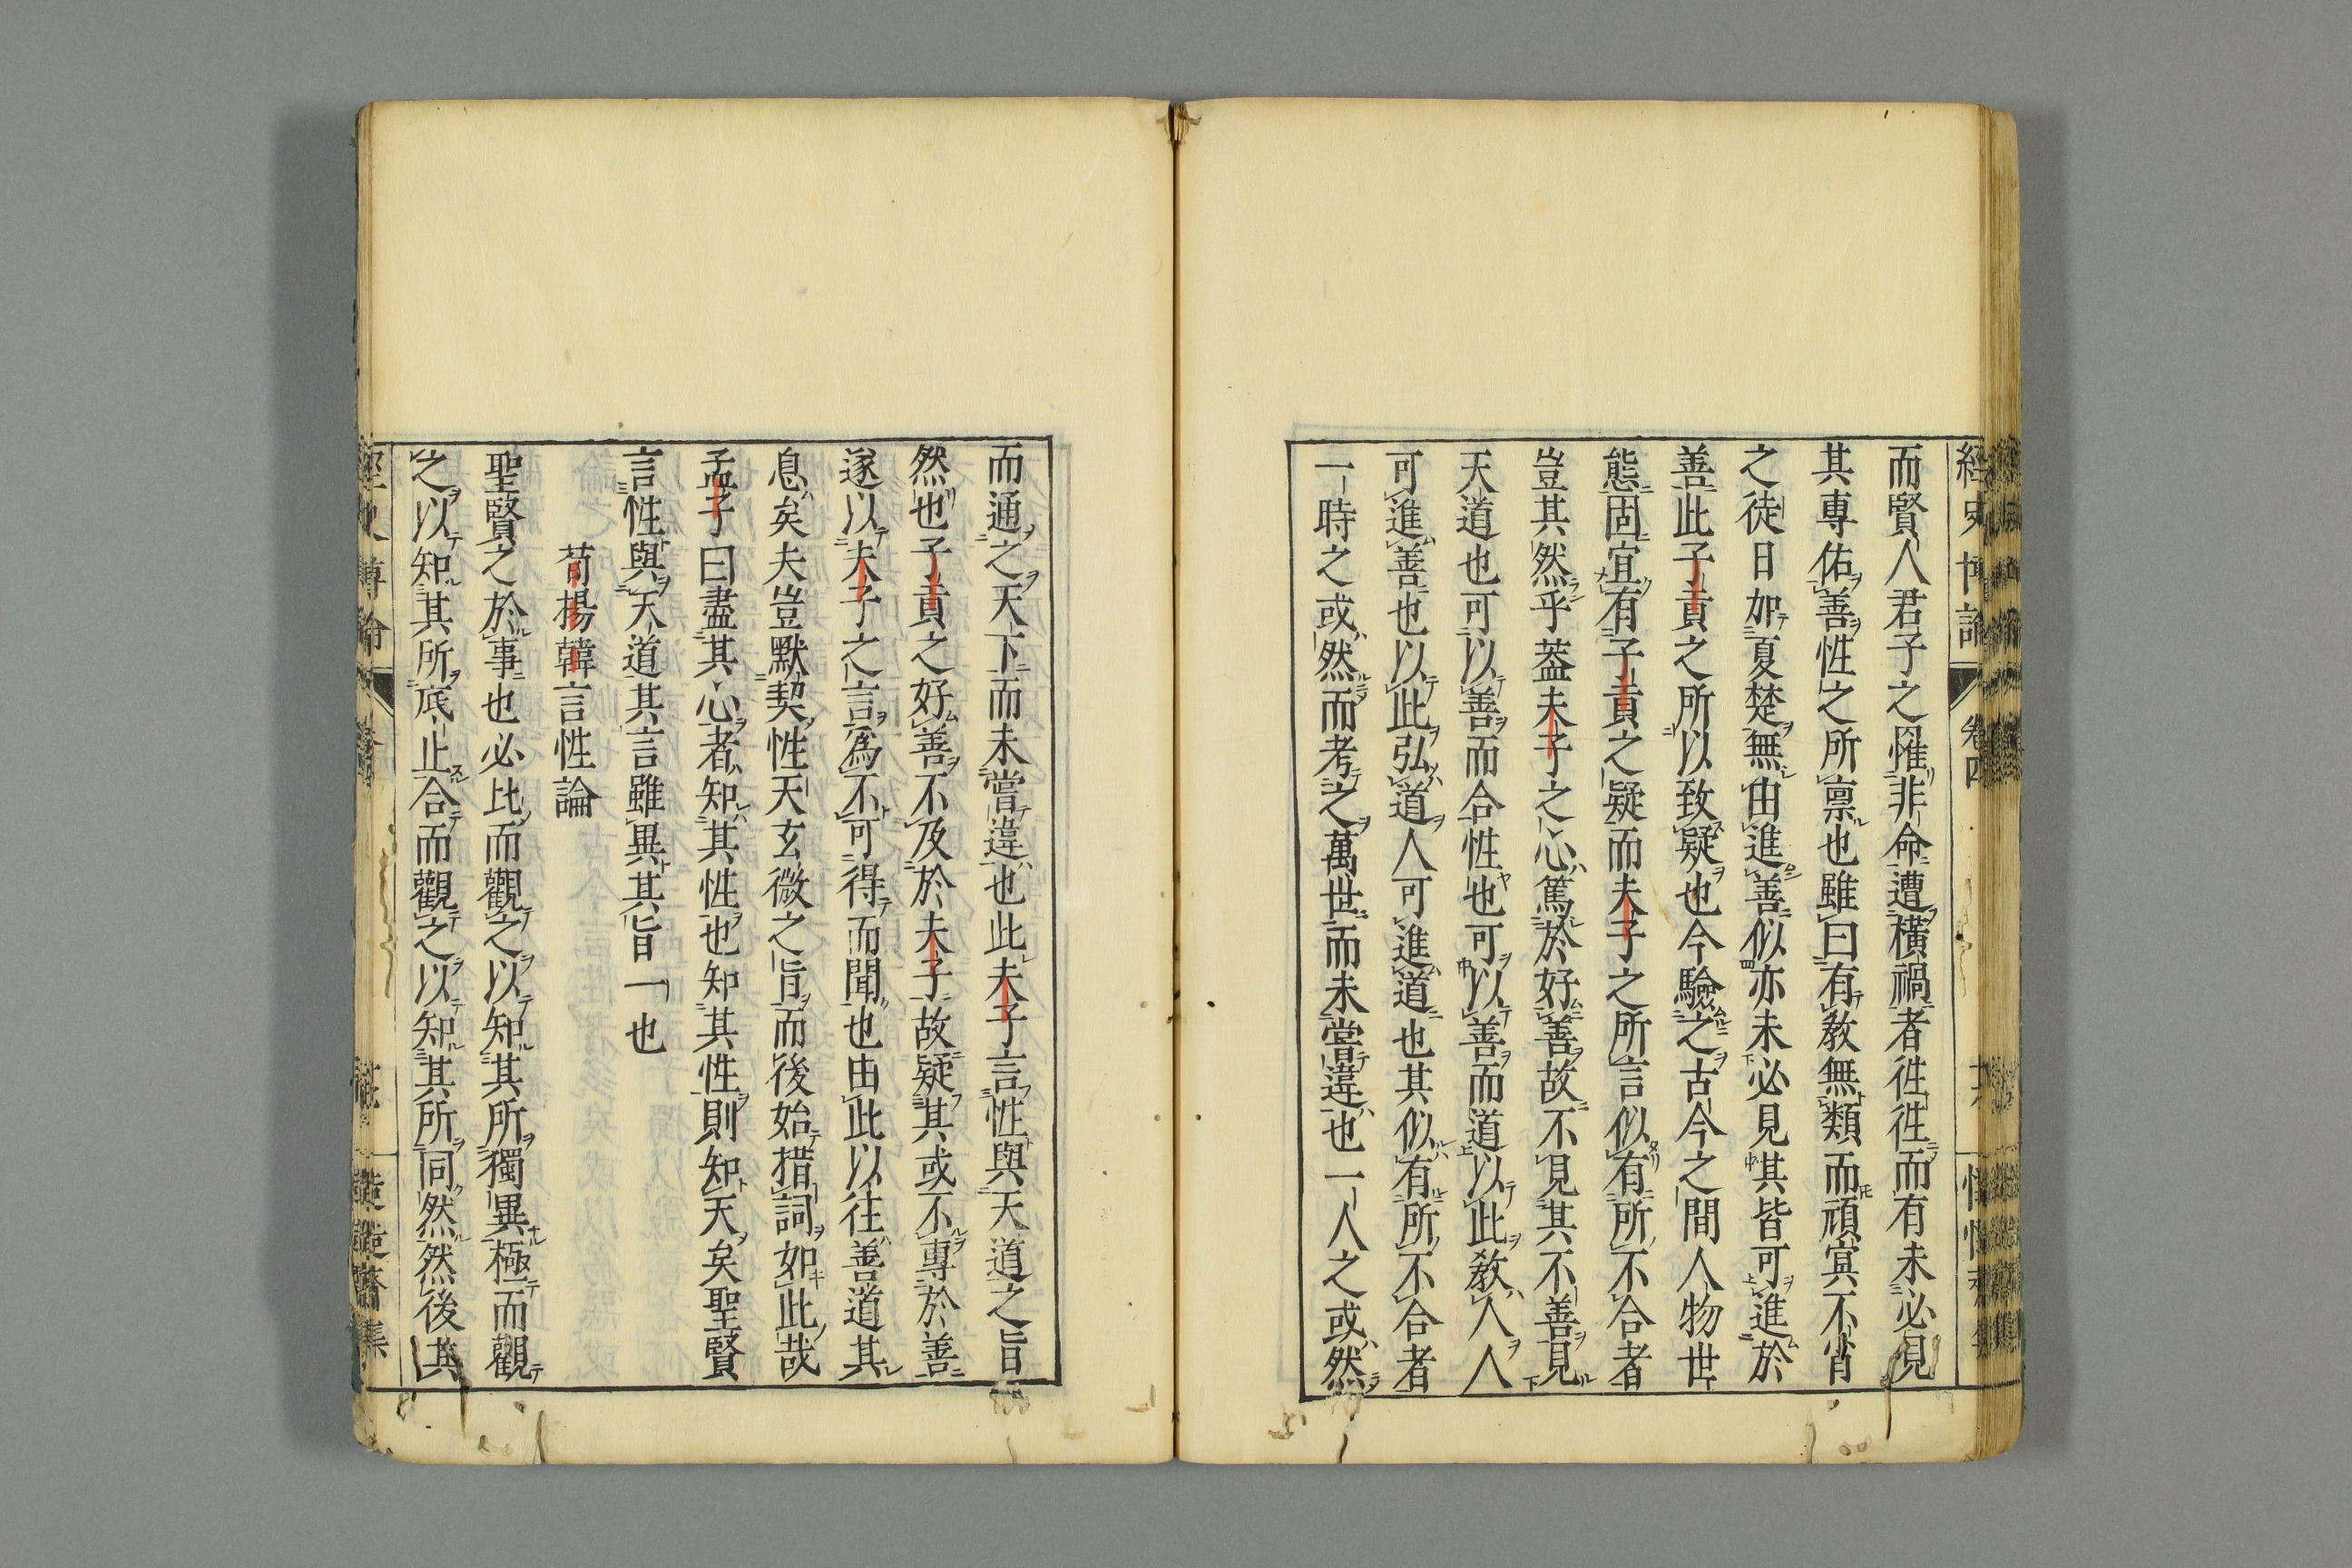 經史博論 卷四
而賢人君子之罹非命遭橫禍者徃徃而有未必見
其專佑善性之所禀也雖曰有敎無類而頑冥不肖
之徒日加夏楚無由進善似亦未必見其皆可進於
善此子貢之所以致疑也今驗之古今之間人物世
態固宜有子貢之疑而夫子之所言似有所不合者
豈其然乎葢夫子之心篤於好善故不見其不善見
天道也可以善而合性也可以善而道以此敎人人
可進善也以此弘道人可進道也其似有所不合者
一時之或然而考之萬世而未嘗違也一人之或然
而通之天下而未嘗違也此夫子言性與天道之旨
然也子貢之好善不及於夫子故疑其或不專於善
遂以夫子之言爲不可得而聞也由此以往善道其
息矣夫豈默契性天玄微之旨而後始措詞如此哉
孟子曰盡其心者知其性也知其性則知天矣聖賢
言性與天道其言雖異其旨一也
荀揚韓言性論
聖賢之於事也必比而觀之以知其所獨異極而觀
之以知其所底止合而觀之以知其所同然然後其